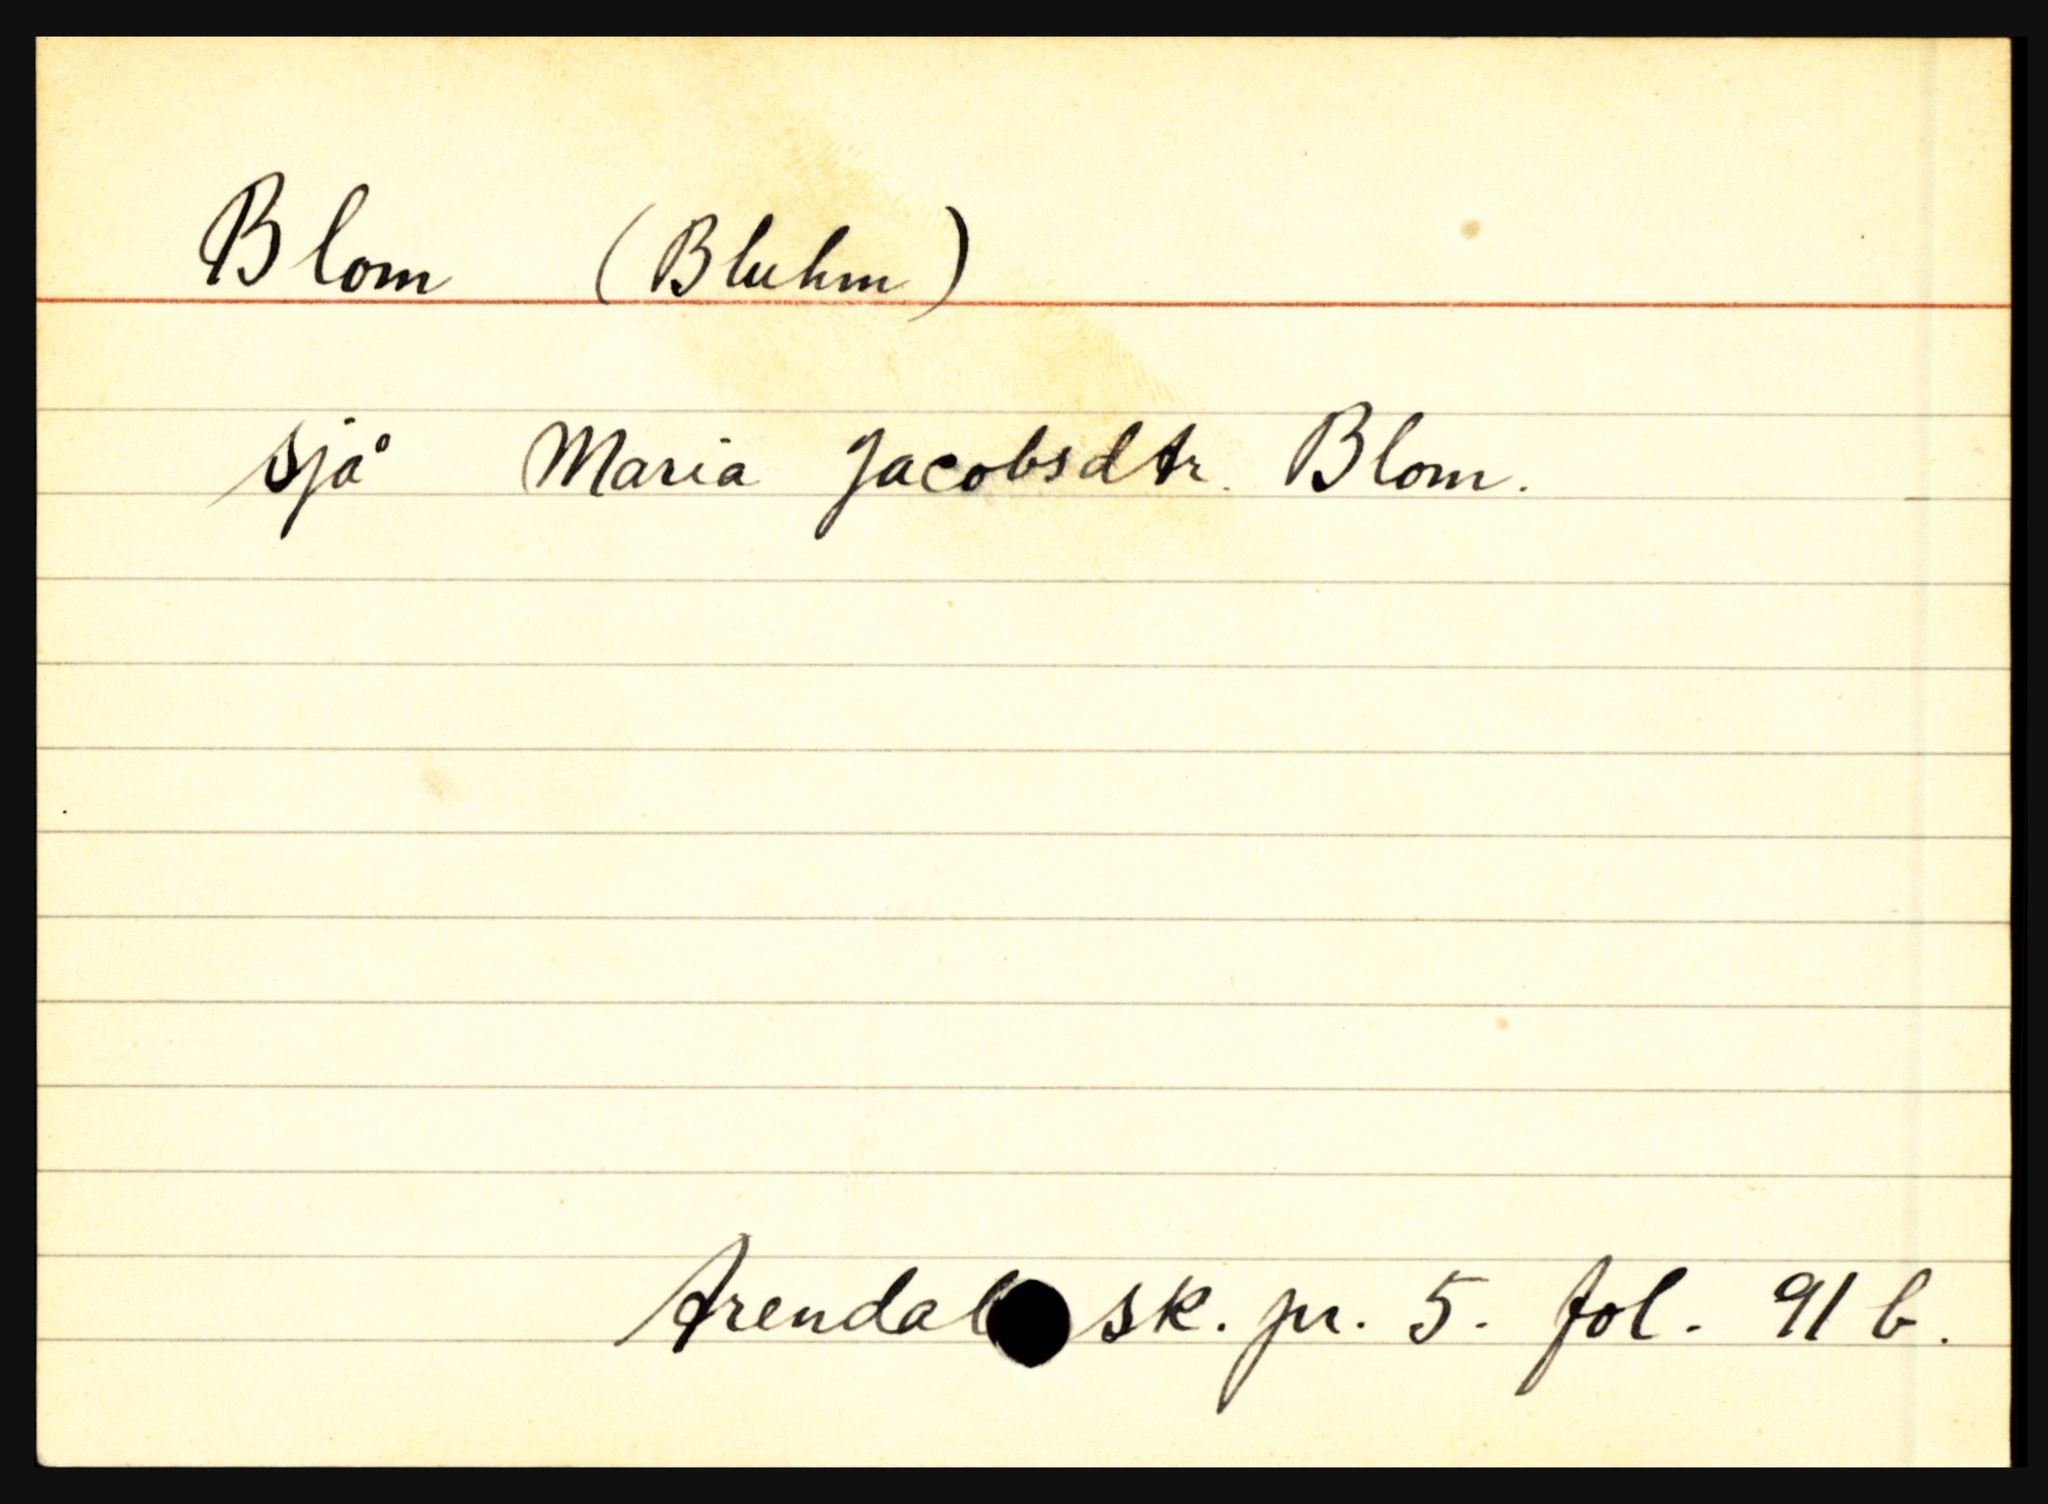 Blom (Bluhm)
sjå Maria Jacobsdtr. Blom.
Arendal sk. pr. 5. fol. 91 b.